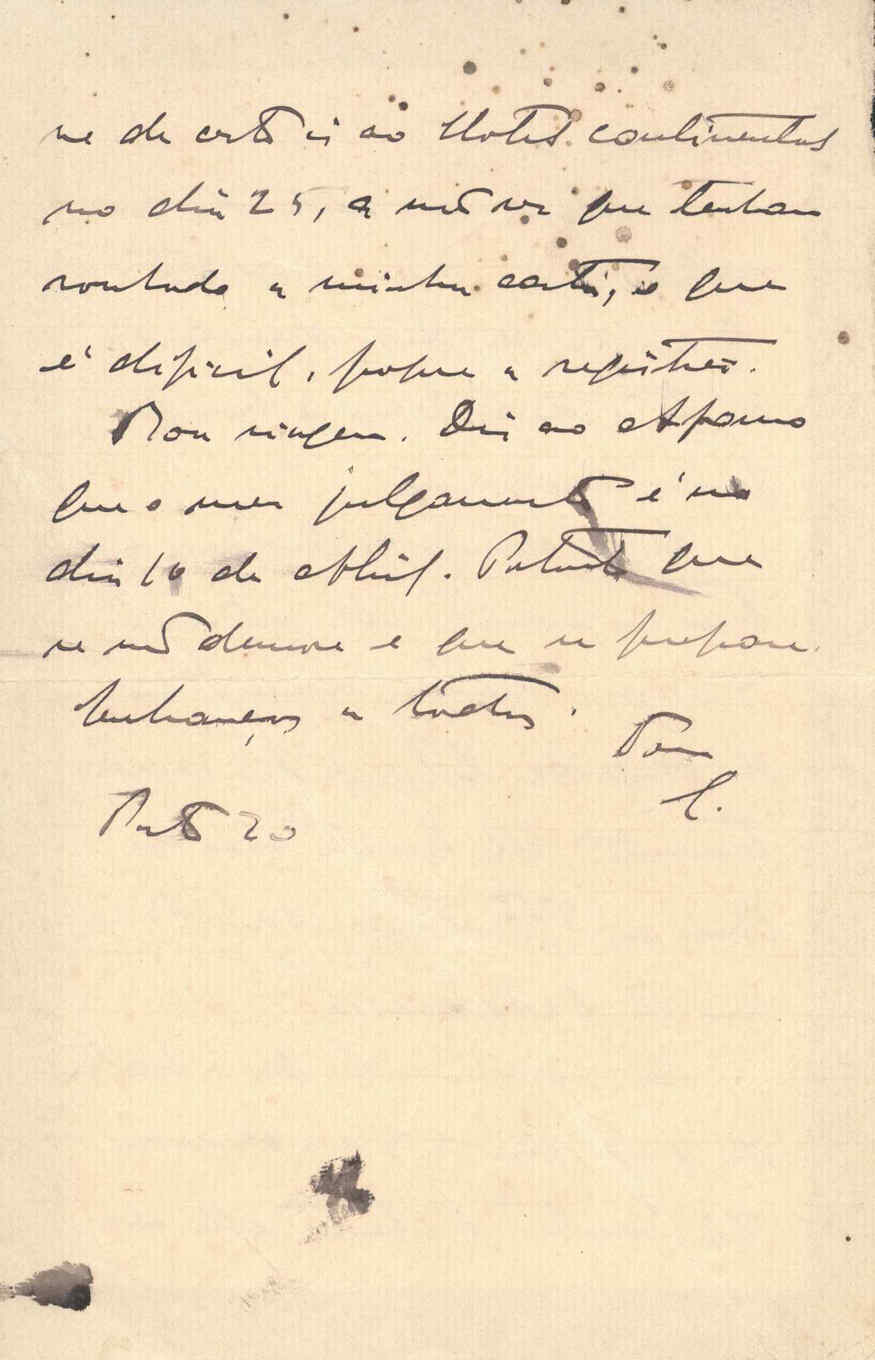 ne de certo ir ao Hotel continental
no dia 25, a não ser que tenham
roubado a minha carta, o que
é dificil, porque a registrei.
Boa viagem. Diz ao Afonso
que o meu julgamento é no
dia 10 de Abril. Portanto que
se não demore e que se prepare.
Lembranças a todos.
Teu
L.
Porto 20